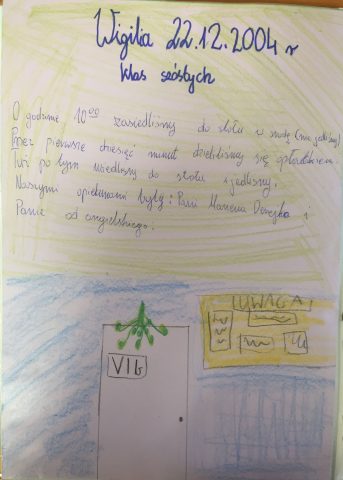 Wigilia 22.12.2004 r
klas szóstych
O godzinie 10⁰⁰ zasiedliśmy do stołu w
Przez pierwsze dziesięć minut dzieliliśmy się opłatkiem.
Tuż po tym usiedliśmy do stołu i jedliśmy.
Naszymi opiekunami były: Pani Marzena i
Panie od angielskiego.
UWAGA!
VIG